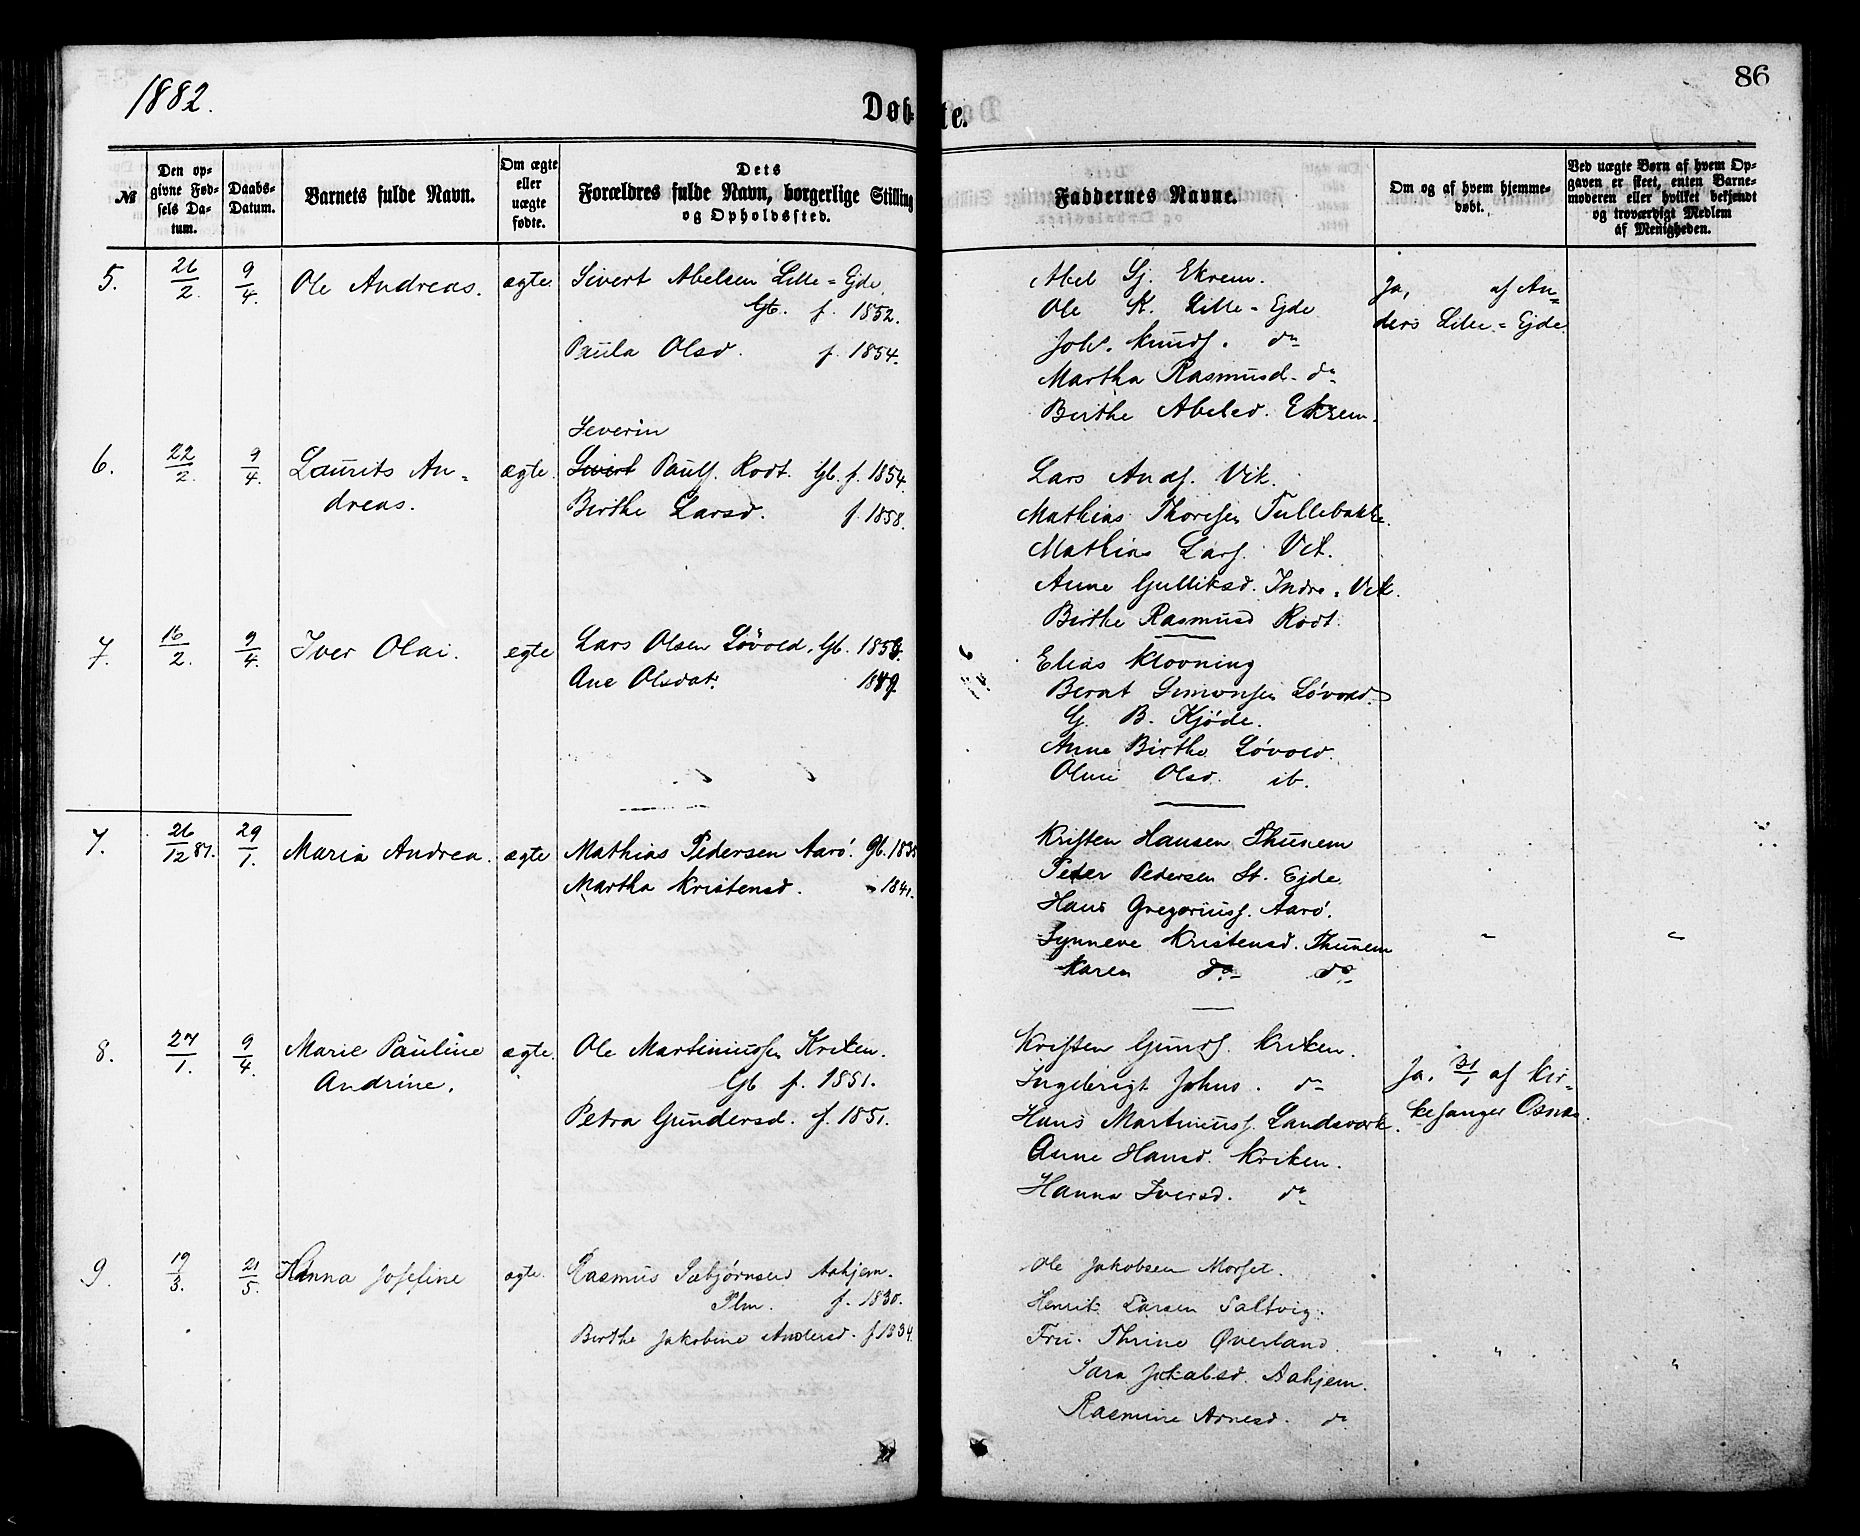 1882.
86
Døbte.
№
Den opgivne Fødsels Datum.
Daabs-Datum.
Barnets fulde Navn.
Om ægte eller uægte fødte.
Dets Forældres fulde Navn, borgerlige Stilling og Opholdssted.
Faddernes Navne.
Om og af hvem hjemmedøbt.
Ved uægte Børn af hvem Opgaven er skeet, enten Barnemoderen eller hvilket bekjendt og troværdigt Medlem af Menigheden.
5. 26/2. 9/4. Ole Andreas. ægte Sivert Abelsen Lille-Ejde,
Gb. f. 1852.
Paula Olsd. f. 1854.
Abel Sj. Ekrem.
Ole K. Lille-Ejde
Joh. Knuds. do
Martha Rasmusd. do
Birthe Abelsd. Ekrem.
Ja, af An=
ders Lille=Ejde
6. 22/2. 9/4. Laurits An=
dreas.
ægte
Severin
Sivert Pauls. Rodt. Gb. f. 1854.
Birthe Larsd. f. 1858.
Lars Ands. Vik.
Mathias Thoresen Tullebakke.
Mathias Lars. Vik.
Anne Gulliksd. Indre-Vik.
Birthe Rasmusd Rodt.
7. 16/2. 9/4. Iver Olai. ægte Lars Olsen Løvold, Gb. 1856.
Ane Olsdat. 1849.
Elias Klovning
Bernt Simonsen Løvold.
G. B. Kjøde.
Anne Birthe Løvold.
Oline Olsd. ib.
7. 26/12 81. 29/1. Maria Andrea. ægte Mathias Pedersen Aarø. Gb. 1835
Martha Kristensd. " 1841.
Kristen Hansen Thunem
Peder Pedersen St. Ejde.
Hans Gregoriuss. Aarø.
Synneve Kristensd. Thunem
Karen do do
8. 27/1. 9/4. Marie Pauline
Andrine.
ægte. Ole Martiniussen Kriken.
Gb f. 1851.
Petra Gundersd. f. 1851.
Kristen Gunds. Kriken.
Ingebrigt Johns. do
Hans Martinuss. Landsværk.
Anne Hansd. Kriken.
Hanna Iversd. do
Ja, 31/1 af Kir=
kesanger Osnes
9. 19/3. 21/5. Hanna Josefine ægte. Rasmus Sæbjørnsen Aahjem.
Plm. f. 1830.
Birthe Jakobine Andersd. f 1834.
Ole Jakobsen Morset.
Henrik Larsen Saltvig.
Fru. Thrine Øverland.
Sara Jakobsd. Aahjem.
Rasmine Arnesd. do